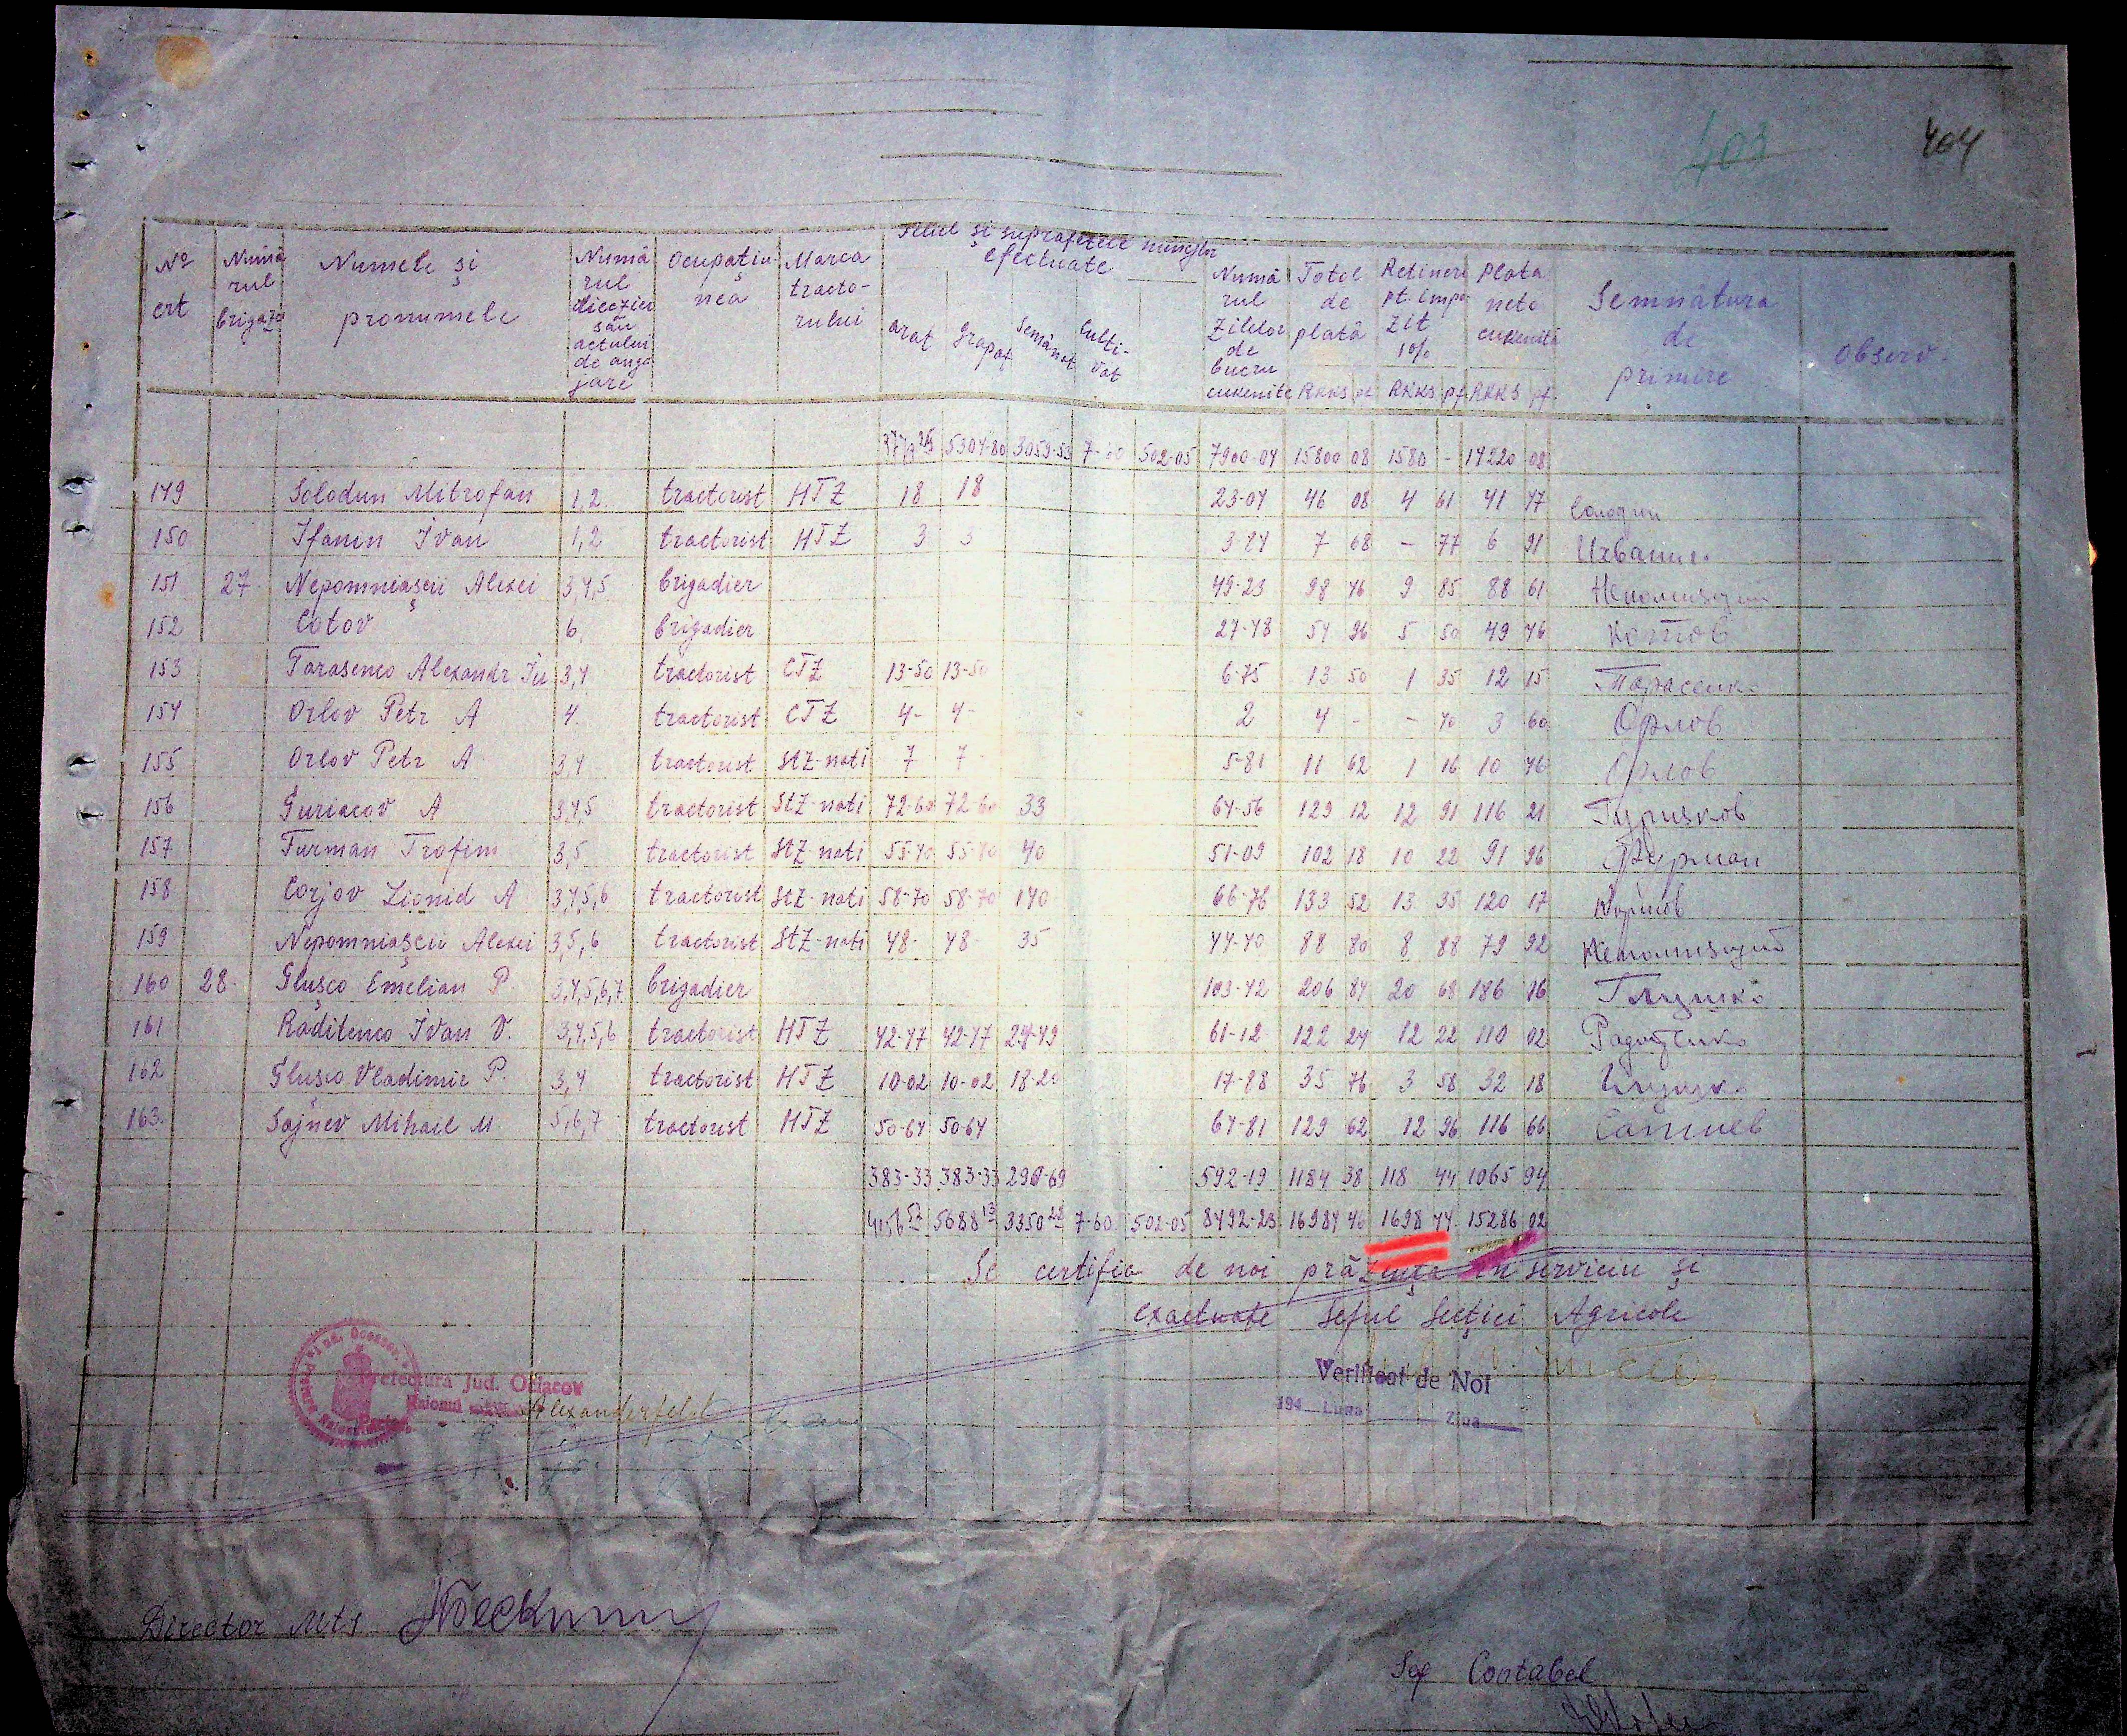 403 404
Felul și suprafetele muncilor
efectuate
No crt
Numărul brigăzii
Numele și pronumele
Numărul său actului de angajare
Ocupațiunea
Marca tractorului
arat Grapat Semănat Cultivat
Numărul Zilelor de lucru cuvenite
Totol de plată RKKS pf
Retineri pt. impozit 10% RKKS pf
Plata neto cuvenită RKKS pf.
Semnătura de primire
Observ.
5304-80 3059-59 7-60 502-05 7900-04 15800 08 1580 - 14220 08
149 Solodun Mitrofan 1,2. tractorist HTZ 18 18 23-04 46 08 4 61 41 47 Солодун
150 Ifanin Ivan 1,2 tractorist HTZ 3 3 3-84 7 68 - 77 6 91
151 27. Nepomneașcii Alexei 3,4,5 brigadier 49-23 98 46 9 85 88 61
152 Cotov 6. brigadier 27-48 54 96 5 50 49 46 Котов
153 Tarasenco Alexandr Iu 3,4 tractorist CTZ 13-50 13-50 6-75 13 50 1 35 12 15 Тарасенко
154 Orlov Petr A 4. tractorist CTZ 4- 4- 2 4 - - 40 3 60 Орлов
155 Orlov Petr A 3,4 tractorist StZ-nati 7 7 - 5-81 11 62 1 16 10 46 Орлов
156 Guriacov A 3,4,5 tractorist StZ-nati 72-60 72-60 33 64-56 129 12 12 91 116 21 Гуряков
157 Furman Trofim 3,5 tractorist StZ-nati 55-40 55-40 40 51-09 102 18 10 22 91 96 Фурман
158 Corjov Lionid A 3,4,5,6 tractorist StZ-nati 58-70 58-70 140 66-76 133 52 13 35 120 17 Коржов
159 Nepomniașcii Alexei 3,5,6 tractorist StZ-nati 48- 48- 35 44-40 88 80 8 88 79 92
160 28. Glușco Emelian P. 3,4,5,6,7 brigadier 103-42 206 84 20 68 186 16 Глушко
161 Raditenco Ivan V. 3,4,5,6 tractorist HTZ 42-47 42-47 24-49 61-12 122 24 12 22 110 02
162 Glușco Vladimir P. 3,4 tractorist HTZ 10-02 10-02 18-20 17-88 35 76 3 58 32 18
163. Sajnev Mihail M 5,6,7 tractorist HTZ 50-64 50-64 64-81 129 62 12 96 116 66
383-33 383-33 290-69 592-19 1184 38 118 44 1065 94
4156 57 5688 13 3350 28 7-60 502-05 8492-23 16984 46 1698 44 15286 02
Se certifica de noi prăzența în serviciu și
exactuate Seful Secției Agricole
Verificat de Noi
194 Luna Ziua
Prefectura Jud. Oceacov
Raionul Alexanderfeld
Director MTS
Șef Contabel